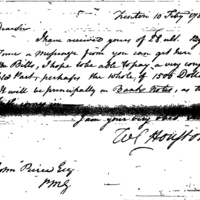 Trenton 10 Feby 178
Dear Sir
I have received yours of 28 ult. By
Time a messenger from you can get here
Bills, I hope to be able to pay a very con
Part, perhaps the whole, of 1500 Dolla
It will be principally in Bank Notes, as
I am your very
W C Houston
John Pierce Esq
P M G